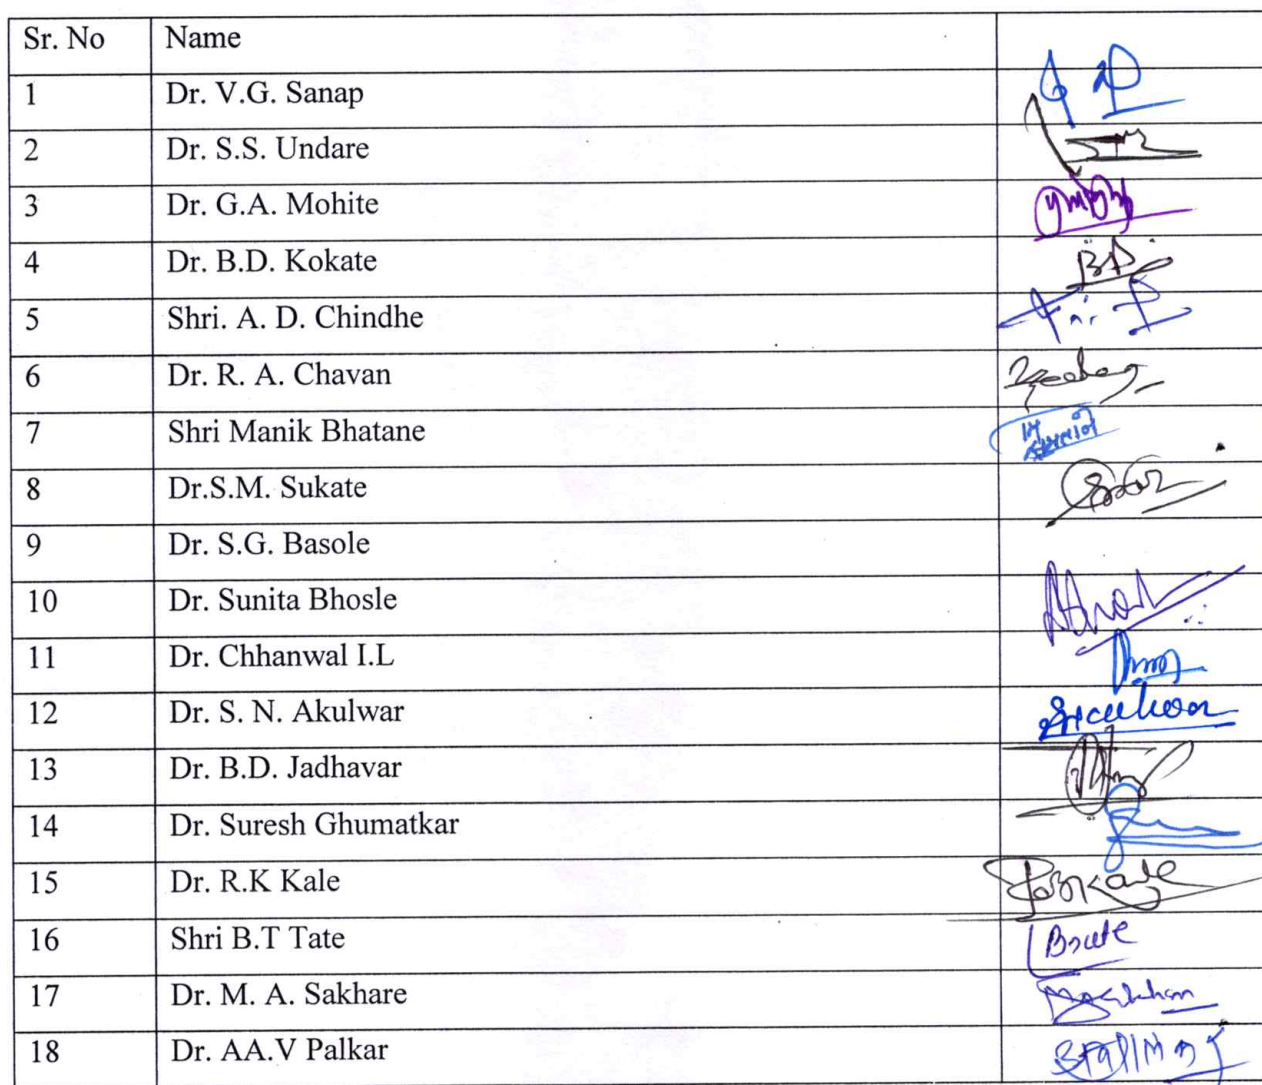 Sr. No Name
1 Dr. V.G. Sanap
2 Dr. S.S. Undare
3 Dr. G.A. Mohite
4 Dr. B.D. Kokate
5 Shri. A. D. Chindhe
6 Dr. R. A. Chavan
7 Shri Manik Bhatane
8 Dr.S.M. Sukate
9 Dr. S.G. Basole
10 Dr. Sunita Bhosle
11 Dr. Chhanwal I.L
12 Dr. S. N. Akulwar
13 Dr. B.D. Jadhavar
14 Dr. Suresh Ghumatkar
15 Dr. R.K Kale
16 Shri B.T Tate
17 Dr. M. A. Sakhare
18 Dr. AA.V Palkar